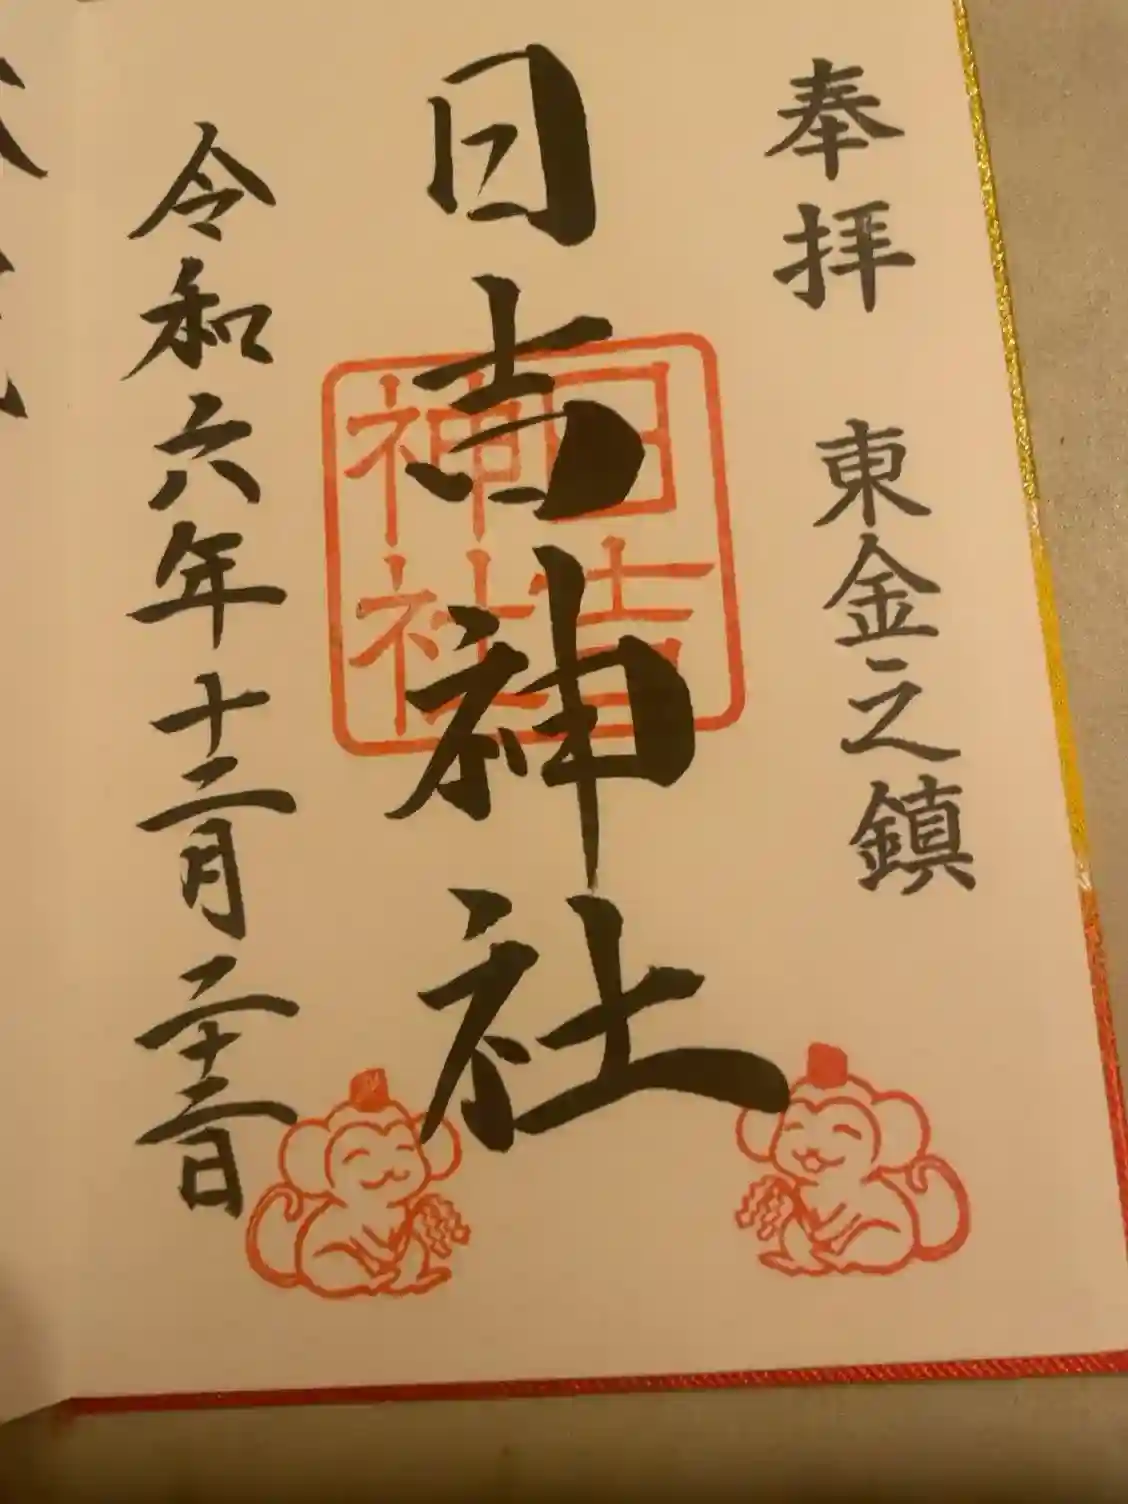 奉拝 東金之鎮
日吉神社
日吉
神社
令和六年十二月二十二日